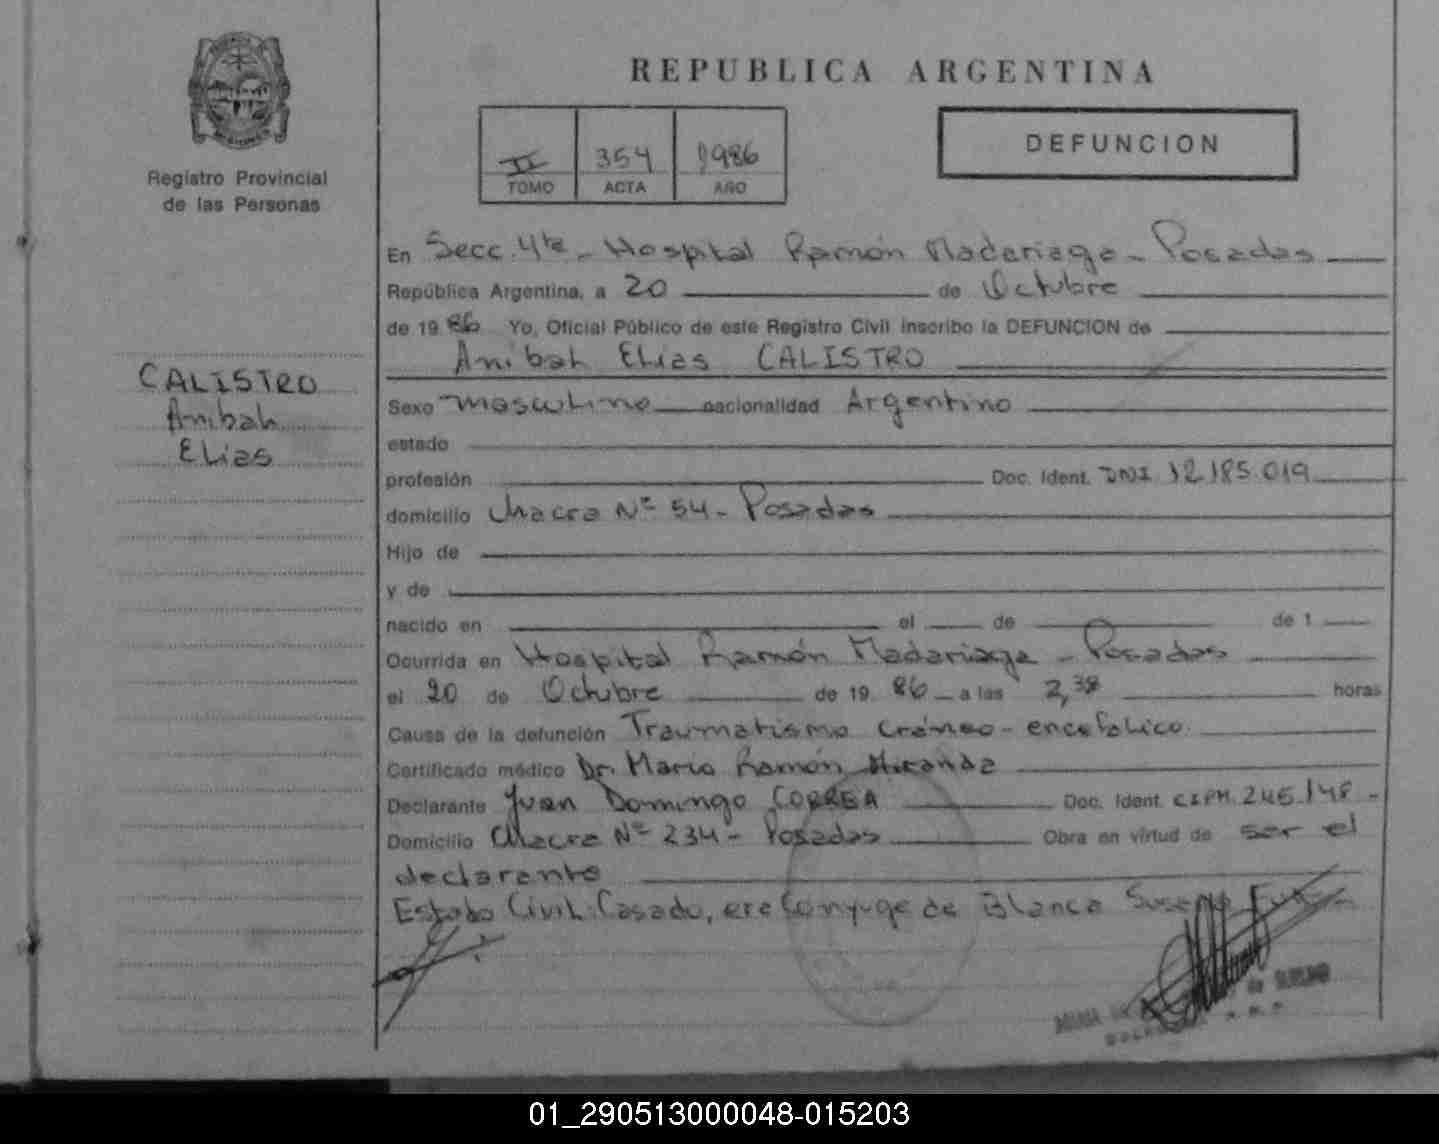 Registro Provincial
de las Personas
CALISTRO
Anibal
Elias
REPUBLICA ARGENTINA
II 354 1986
TOMO ACTA AÑO
DEFUNCION
En Secc. 4ta - Hospital Ramón Madariaga - Posadas
República Argentina, a 20 de Octubre
de 1986 Yo, Oficial Público de este Registro Civil inscribo la DEFUNCION de
Anibal Elias CALISTRO
Sexo masculino nacionalidad Argentino
estado
profesión Doc. Ident. DNI 12.185.019
domicilio Chacra Nº 54 - Posadas
Hijo de
y de
nacido en el de de 1
Ocurrida en Hospital Ramón Madariaga - Posadas
el 20 de Octubre de 1986 a las 2,38 horas
Causa de la defunción Traumatismo cráneo-encefalico.
Certificado médico Dr. Mario Ramón Miranda
Declarante Juan Domingo CORREA Doc. Ident. CIPM. 245.148 -
Domicilio Chacra Nº 234 - Posadas Obra en virtud de ser el
declarante
Estado Civil: Casado, era Conyuge de Blanca Susana
01_290513000048-015203